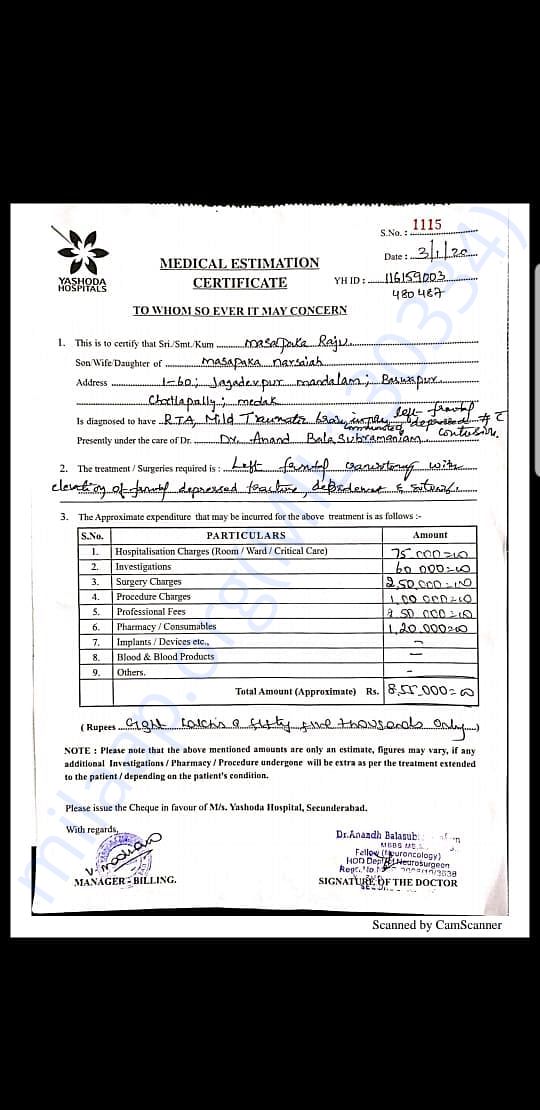 S.No. : 1115
Date : 3/1/20
YASHODA
HOSPITALS
MEDICAL ESTIMATION
CERTIFICATE
YH ID : 116159003
480487
TO WHOM SO EVER IT MAY CONCERN
1. This is to certify that Sri./Smt./Kum masapaka Raju
Son/Wife/Daughter of masapaka narsaiah
Address 1-60; Jagadevpur mandalam; Baswapur
medak
Is diagnosed to have RTA, Mild Traumatic left frontal depressed # c contusion.
Presently under the care of Dr. Dr. Anand Bala Subramaniam
2. The treatment / Surgeries required is : Left frontal with
elevation of frontal depressed fracture,
3. The Approximate expenditure that may be incurred for the above treatment is as follows :-
S.No. PARTICULARS Amount
1. Hospitalisation Charges (Room / Ward / Critical Care) 75 000=00
2. Investigations 60 000=00
3. Surgery Charges 2,50,000=00
4. Procedure Charges 1,00 000=00
5. Professional Fees 2 50 000=00
6. Pharmacy / Consumables 1,20 000=00
7. Implants / Devices etc., -
8. Blood & Blood Products -
9. Others. -
Total Amount (Approximate) Rs. 8,55,000=00
( Rupees Eight fifty five thousands only )
NOTE : Please note that the above mentioned amounts are only an estimate, figures may vary, if any
additional Investigations / Pharmacy / Procedure undergone will be extra as per the treatment extended
to the patient / depending on the patient's condition.
Please issue the Cheque in favour of M/s. Yashoda Hospital, Secunderabad.
With regards,
Dr.Anandh Balasub
MBBS MS
Fellow (Neuroncology)
HOD Dept Neurosurgeon
MANAGER - BILLING.
SIGNATURE OF THE DOCTOR
Scanned by CamScanner